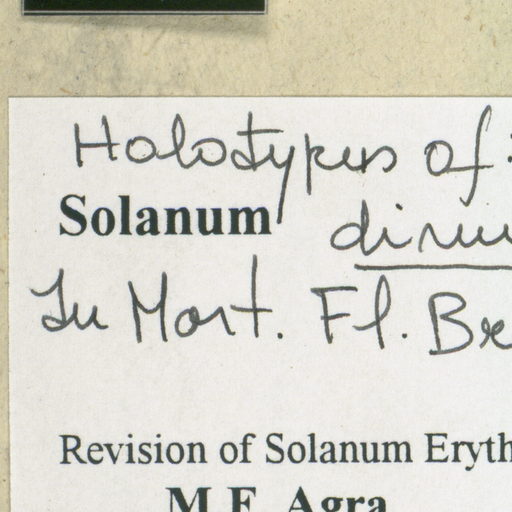 Holotypus of:
Solanum
In Mart. Fl. Br
Revision of Solanum Eryth
M.F. Agra